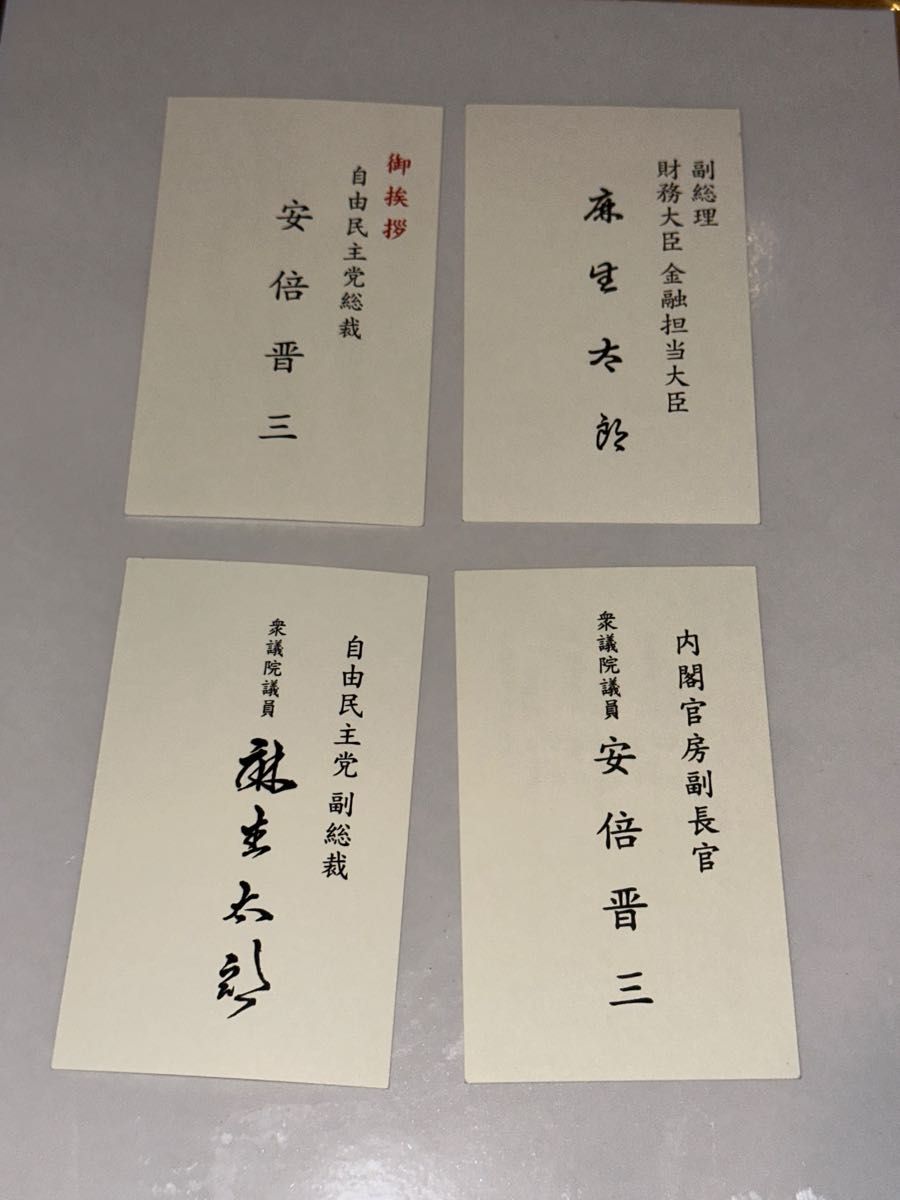 御挨拶
自由民主党総裁
安倍晋三
副総理
財務大臣 金融担当大臣
麻生太郎
自由民主党 副総裁
衆議院議員 麻生太郎
内閣官房副長官
衆議院議員 安倍晋三